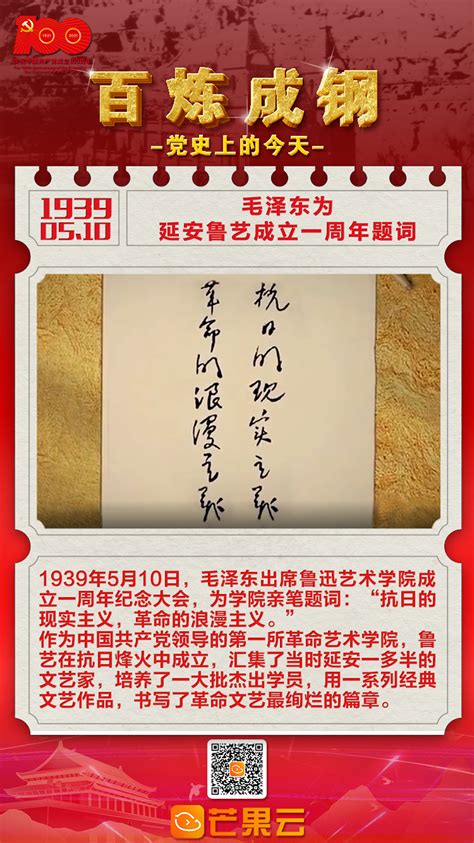 100
1921
2021
百炼成钢
-党史上的今天-
1939
05.10
毛泽东为
延安鲁艺成立一周年题词
抗日的现实主义
革命的浪漫主义
1939年5月10日,毛泽东出席鲁迅艺术学院成
立一周年纪念大会,为学院亲笔题词:“抗日的
现实主义,革命的浪漫主义。”
作为中国共产党领导的第一所革命艺术学院,鲁
艺在抗日烽火中成立,汇集了当时延安一多半的
文艺家,培养了一大批杰出学员,用一系列经典
文艺作品,书写了革命文艺最绚烂的篇章。
芒果云